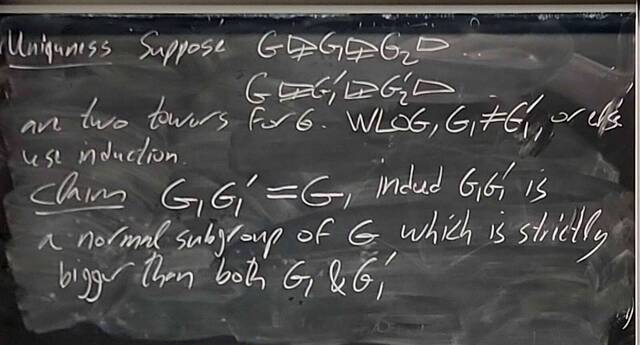 Uniquness Suppose G ⋭ G₁ ⋭ G₂ ▷ ...
G ⋭ G₁' ⋭ G₂' ▷
are two towers for G. WLOG, G₁ ≠ G₁', or else
use induction.
Claim G₁G₁' = G, indud G₁G₁' is
a normal subgroup of G which is strictly
bigger than both G₁ & G₁'